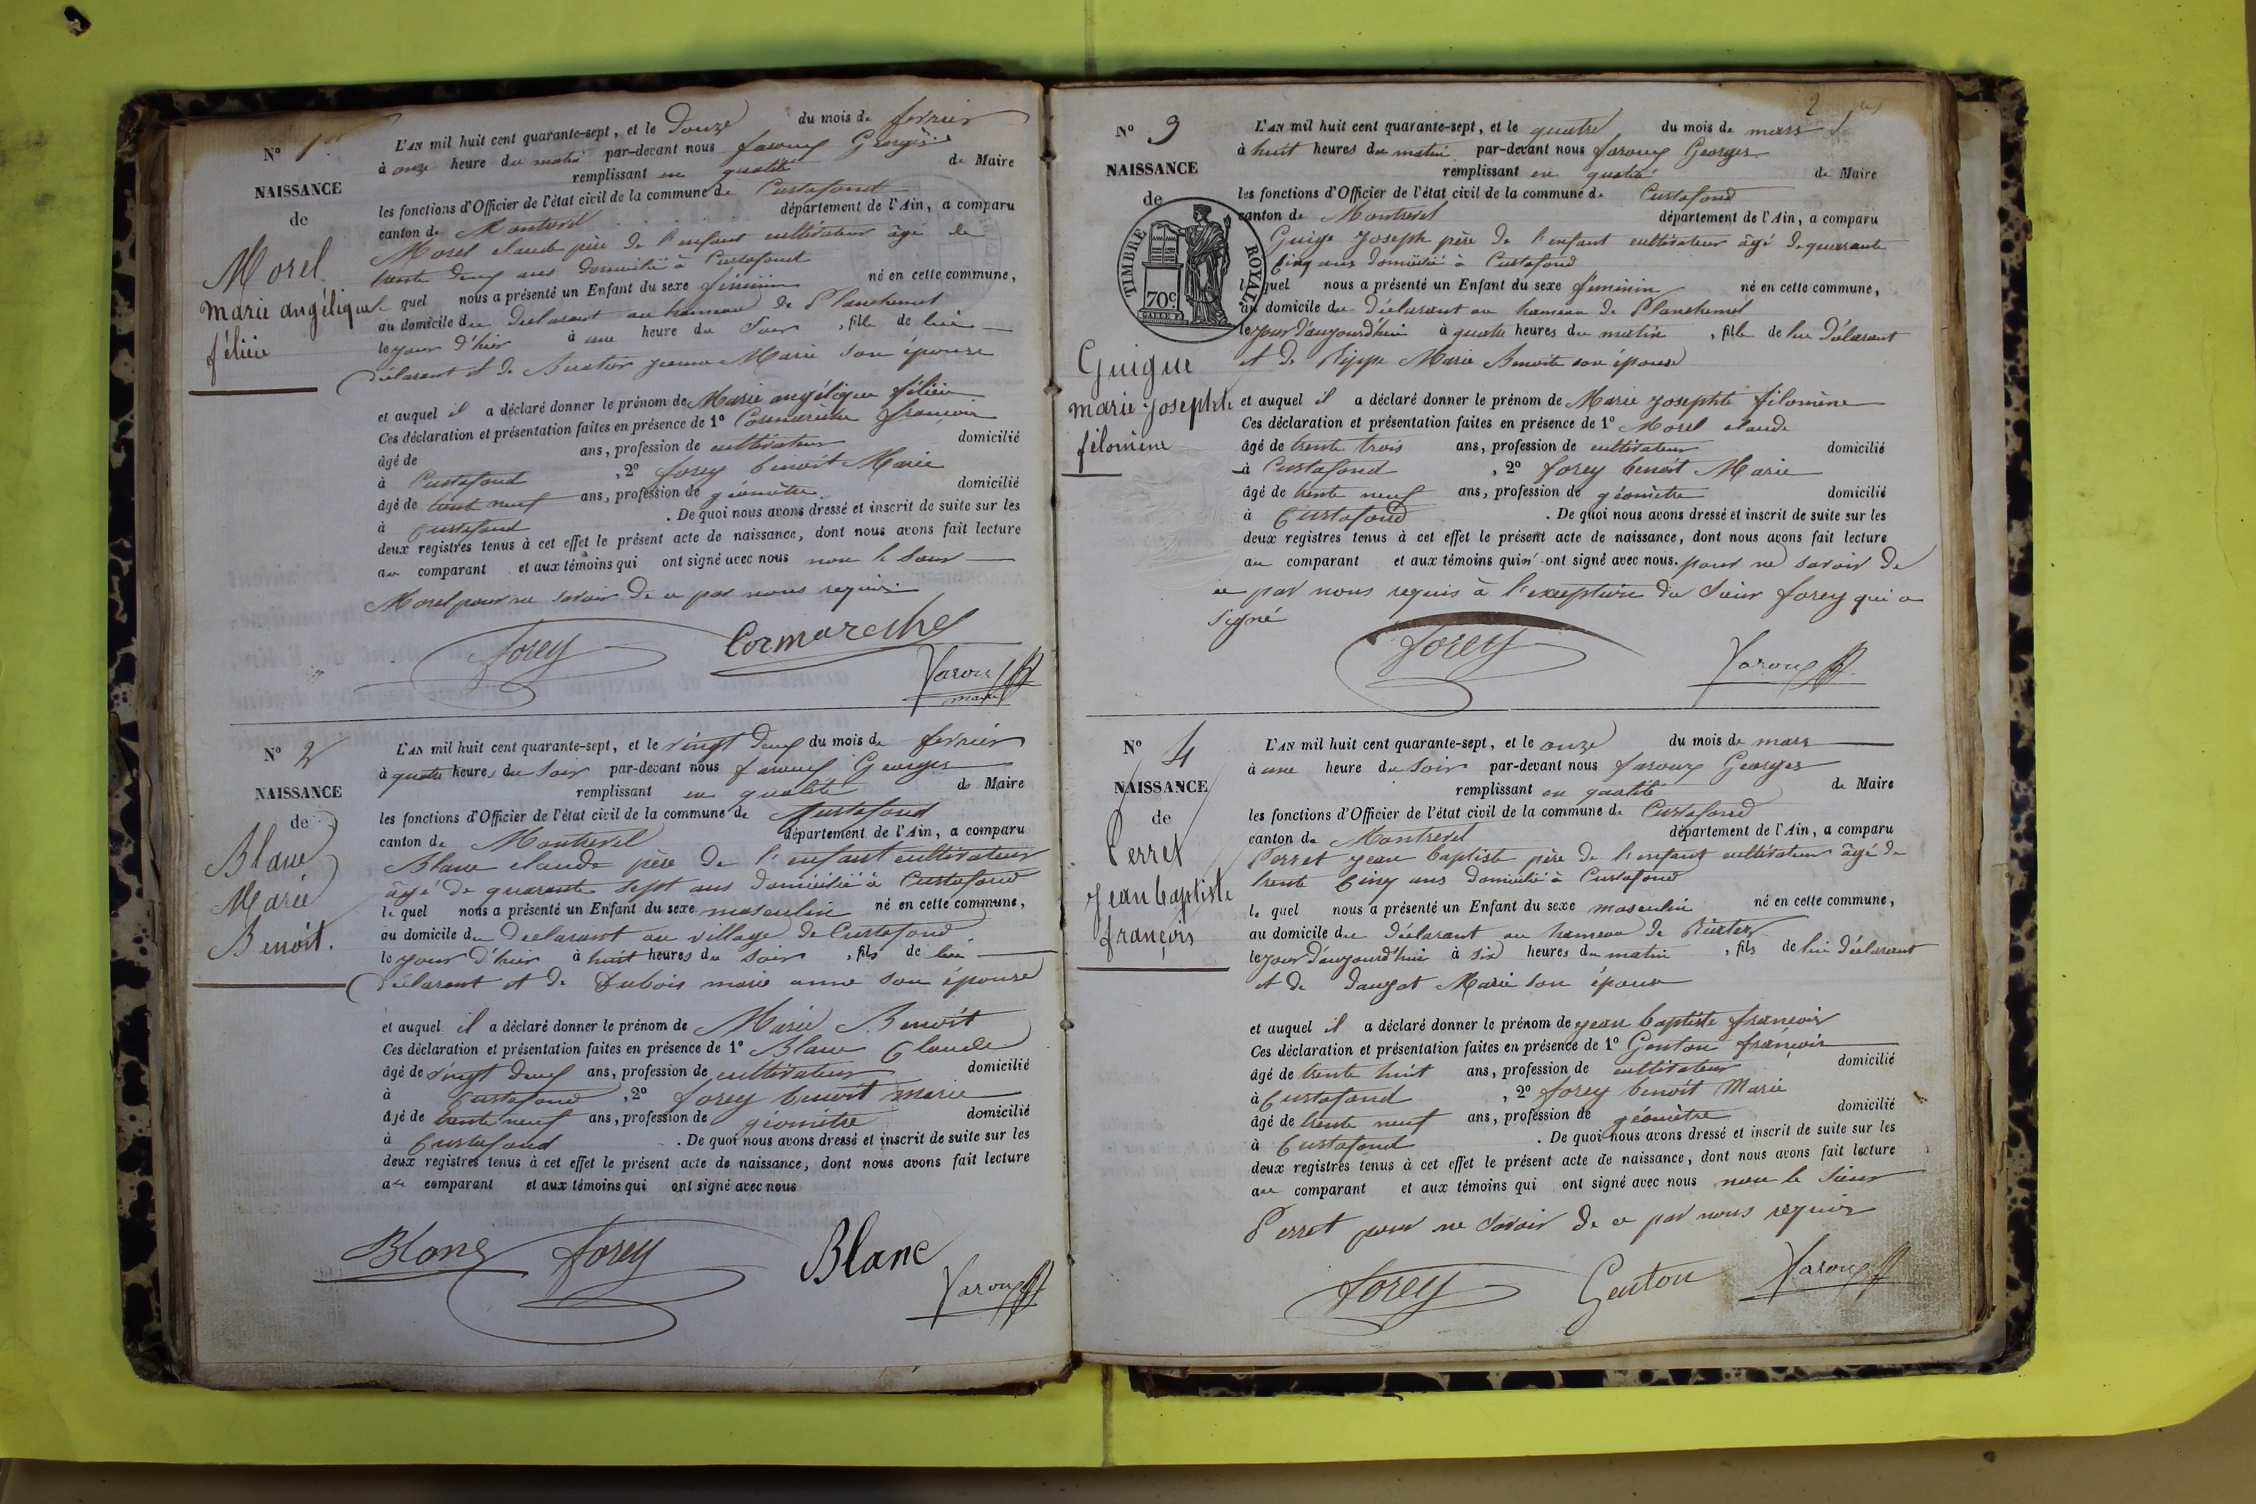 N° 1er
NAISSANCE
de
Morel
marie angélique
félicie
L'AN mil huit cent quarante-sept, et le douze du mois de fevrier
à onze heure du matin par-devant nous faroux Georges
remplissant en qualité de Maire
les fonctions d'Officier de l'état civil de la commune de Curtafond
canton de Montrevel département de l'Ain, a comparu
Morel claude père de l'enfant cultivateur âgé de
trente deux ans domicilié à Curtafond
le quel nous a présenté un Enfant du sexe féminin né en cette commune,
au domicile du declarant au hameau de Planchemel
le jour d'hier à une heure du soir, fille de lui
déclarant et de jeanne Marie son épouse
et auquel il a déclaré donner le prénom de Marie angélique félicie
Ces déclaration et présentation faites en présence de 1° Cormareche françois
âgé de ans, profession de cultivateur domicilié
à Curtafond, 2° forey benoit Marie
âgé de trente neuf ans, profession de géomètre domicilié
à Curtafond. De quoi nous avons dressé et inscrit de suite sur les
deux registres tenus à cet effet le présent acte de naissance, dont nous avons fait lecture
au comparant et aux témoins qui ont signé avec nous non le sieur
Morel pour ne savoir de ce par nous requis
forey Cormareche
faroux
maire
N° 2
NAISSANCE
de
Blanc
Marie
Benoit.
L'AN mil huit cent quarante-sept, et le vingt deux du mois de fevrier
à quatre heures du soir par-devant nous faroux Georges
remplissant en qualité de Maire
les fonctions d'Officier de l'état civil de la commune de Curtafond
canton de Montrevel département de l'Ain, a comparu
Blanc claude père de l'enfant cultivateur
âgé de quarante sept ans domicilié à Curtafond
le quel nous a présenté un Enfant du sexe masculin né en cette commune,
au domicile du declarant au village de Curtafond
le jour d'hier à huit heures du soir, fils de lui
déclarant et de Dubois marie anne son épouse
et auquel il a déclaré donner le prénom de Marie Benoit
Ces déclaration et présentation faites en présence de 1° Blanc Claude
âgé de vingt deux ans, profession de cultivateur domicilié
à Curtafond, 2° forey benoit marie
âgé de trente neuf ans, profession de géomètre domicilié
à Curtafond. De quoi nous avons dressé et inscrit de suite sur les
deux registres tenus à cet effet le présent acte de naissance, dont nous avons fait lecture
au comparant et aux témoins qui ont signé avec nous
Blanc forey Blanc
faroux
2
N° 3
NAISSANCE
de
TIMBRE ROYAL
70c
Guigue
marie josephte
filomène
L'AN mil huit cent quarante-sept, et le quatre du mois de mars
à huit heures du matin par-devant nous faroux Georges
remplissant en qualité de Maire
les fonctions d'Officier de l'état civil de la commune de Curtafond
canton de Montrevel département de l'Ain, a comparu
Guigue joseph père de l'enfant cultivateur âgé de quarante
Cinq ans domicilié à Curtafond
le quel nous a présenté un Enfant du sexe féminin né en cette commune,
au domicile du déclarant au hameau de Planchemel
le jour d'aujourd'hui à quatre heures du matin, fille de lui déclarant
et de Marie Benoite son épouse
et auquel il a déclaré donner le prénom de Marie josephte filomène
Ces déclaration et présentation faites en présence de 1° Morel claude
âgé de trente trois ans, profession de cultivateur domicilié
à Curtafond, 2° forey benoit Marie
âgé de trente neuf ans, profession de géomètre domicilié
à Curtafond. De quoi nous avons dressé et inscrit de suite sur les
deux registres tenus à cet effet le présent acte de naissance, dont nous avons fait lecture
au comparant et aux témoins qui n' ont signé avec nous. pour ne savoir de
ce par nous requis à l'exception du sieur forey qui a
signé
forey faroux
N° 4
NAISSANCE
de
Perret
jean baptiste
françois
L'AN mil huit cent quarante-sept, et le onze du mois de mars
à une heure du soir par-devant nous faroux Georges
remplissant en qualité de Maire
les fonctions d'Officier de l'état civil de la commune de Curtafond
canton de Montrevel département de l'Ain, a comparu
Perret jean baptiste père de l'enfant cultivateur âgé de
trente Cinq ans domicilié à Curtafond
le quel nous a présenté un Enfant du sexe masculin né en cette commune,
au domicile du déclarant au hameau de
le jour d'aujourd'hui à six heures du matin, fils de lui déclarant
et de Marie son épouse
et auquel il a déclaré donner le prénom de jean baptiste françois
Ces déclaration et présentation faites en présence de 1° Genton françois
âgé de trente huit ans, profession de cultivateur domicilié
à Curtafond, 2° forey benoit Marie
âgé de trente neuf ans, profession de géomètre domicilié
à Curtafond. De quoi nous avons dressé et inscrit de suite sur les
deux registres tenus à cet effet le présent acte de naissance, dont nous avons fait lecture
au comparant et aux témoins qui ont signé avec nous non le sieur
Perret pour ne savoir de ce par nous requis
forey Genton faroux